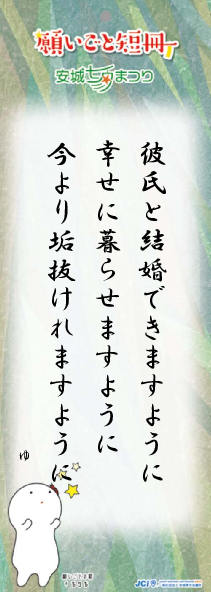 願いごと短冊
安城七夕まつり
彼氏と結婚できますように
幸せに暮らせますように
今より垢抜けれますように
ゆ
JCI